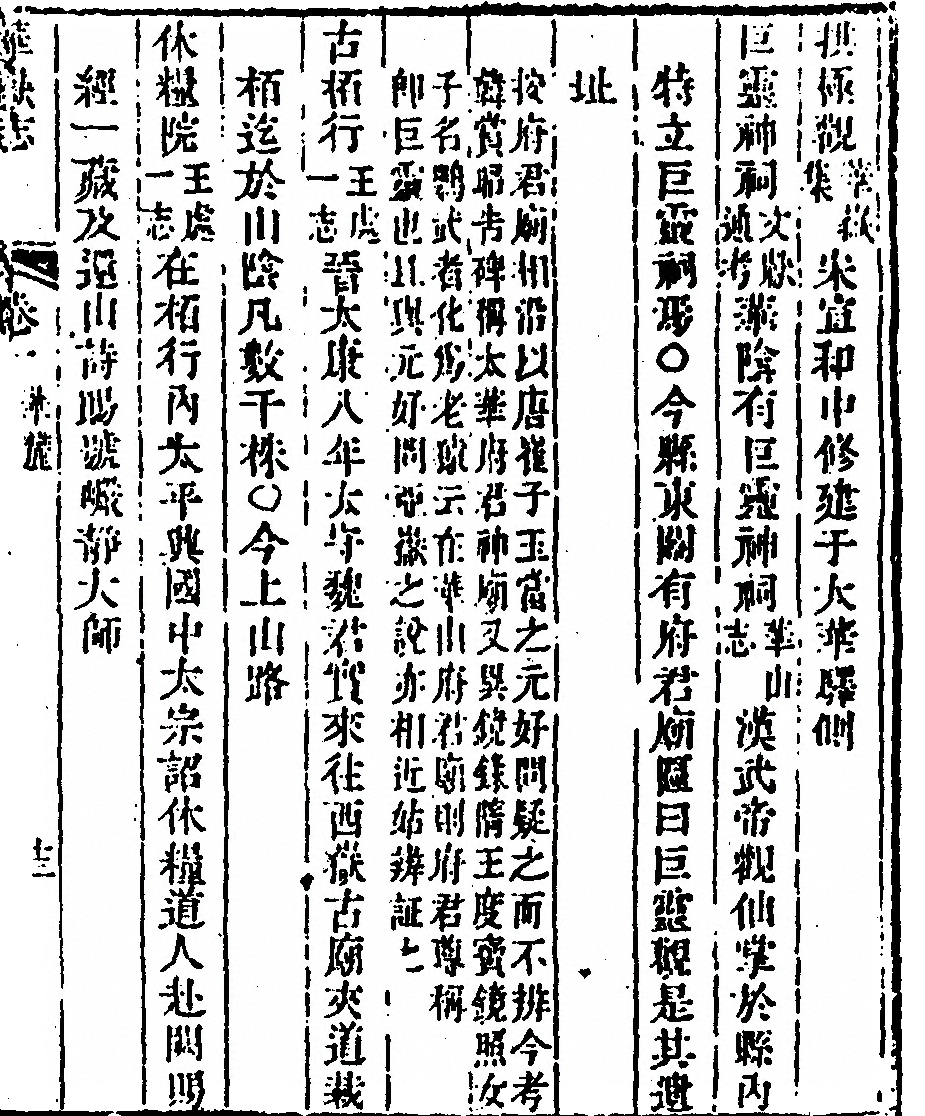 拱極觀華嶽集宋宣和中修建于太華驛側
巨靈神祠文獻通考華陰有巨靈神祠華山志漢武帝觀仙掌於縣內
特立巨靈祠焉〇今縣東關有府君廟匾曰巨靈觀是其遺
址
按府君廟相沿以唐崔子玉當之元好問疑之而不辨今考
韓賞昭告碑稱太華府君神廟又異鏡錄隋王度寶鏡照女
子名鸚武者化為老貍云在華山府君廟則府君尊稱
卽巨靈也且與元好問亞嶽之說亦相近姑辨証之
古柏行王處一志晉太康八年太守魏君實來往西嶽古廟夾道栽
栢迄於山陰凡數千株〇今上山路
休糧院王處一志在栢行內太平興國中太宗詔休糧道人赴闕賜
經一藏及還山詩賜號巖靜大師
華嶽志
卷一
華嶽
十三